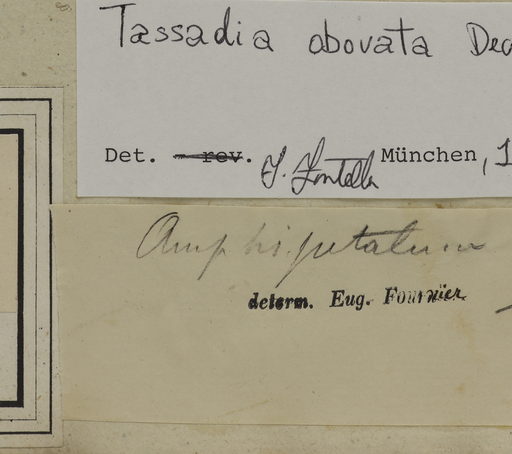 Tassadia obovata Dec
Det. rev. J. Fontella München, 1
Amphipetalum
determ. Eug. Fournier